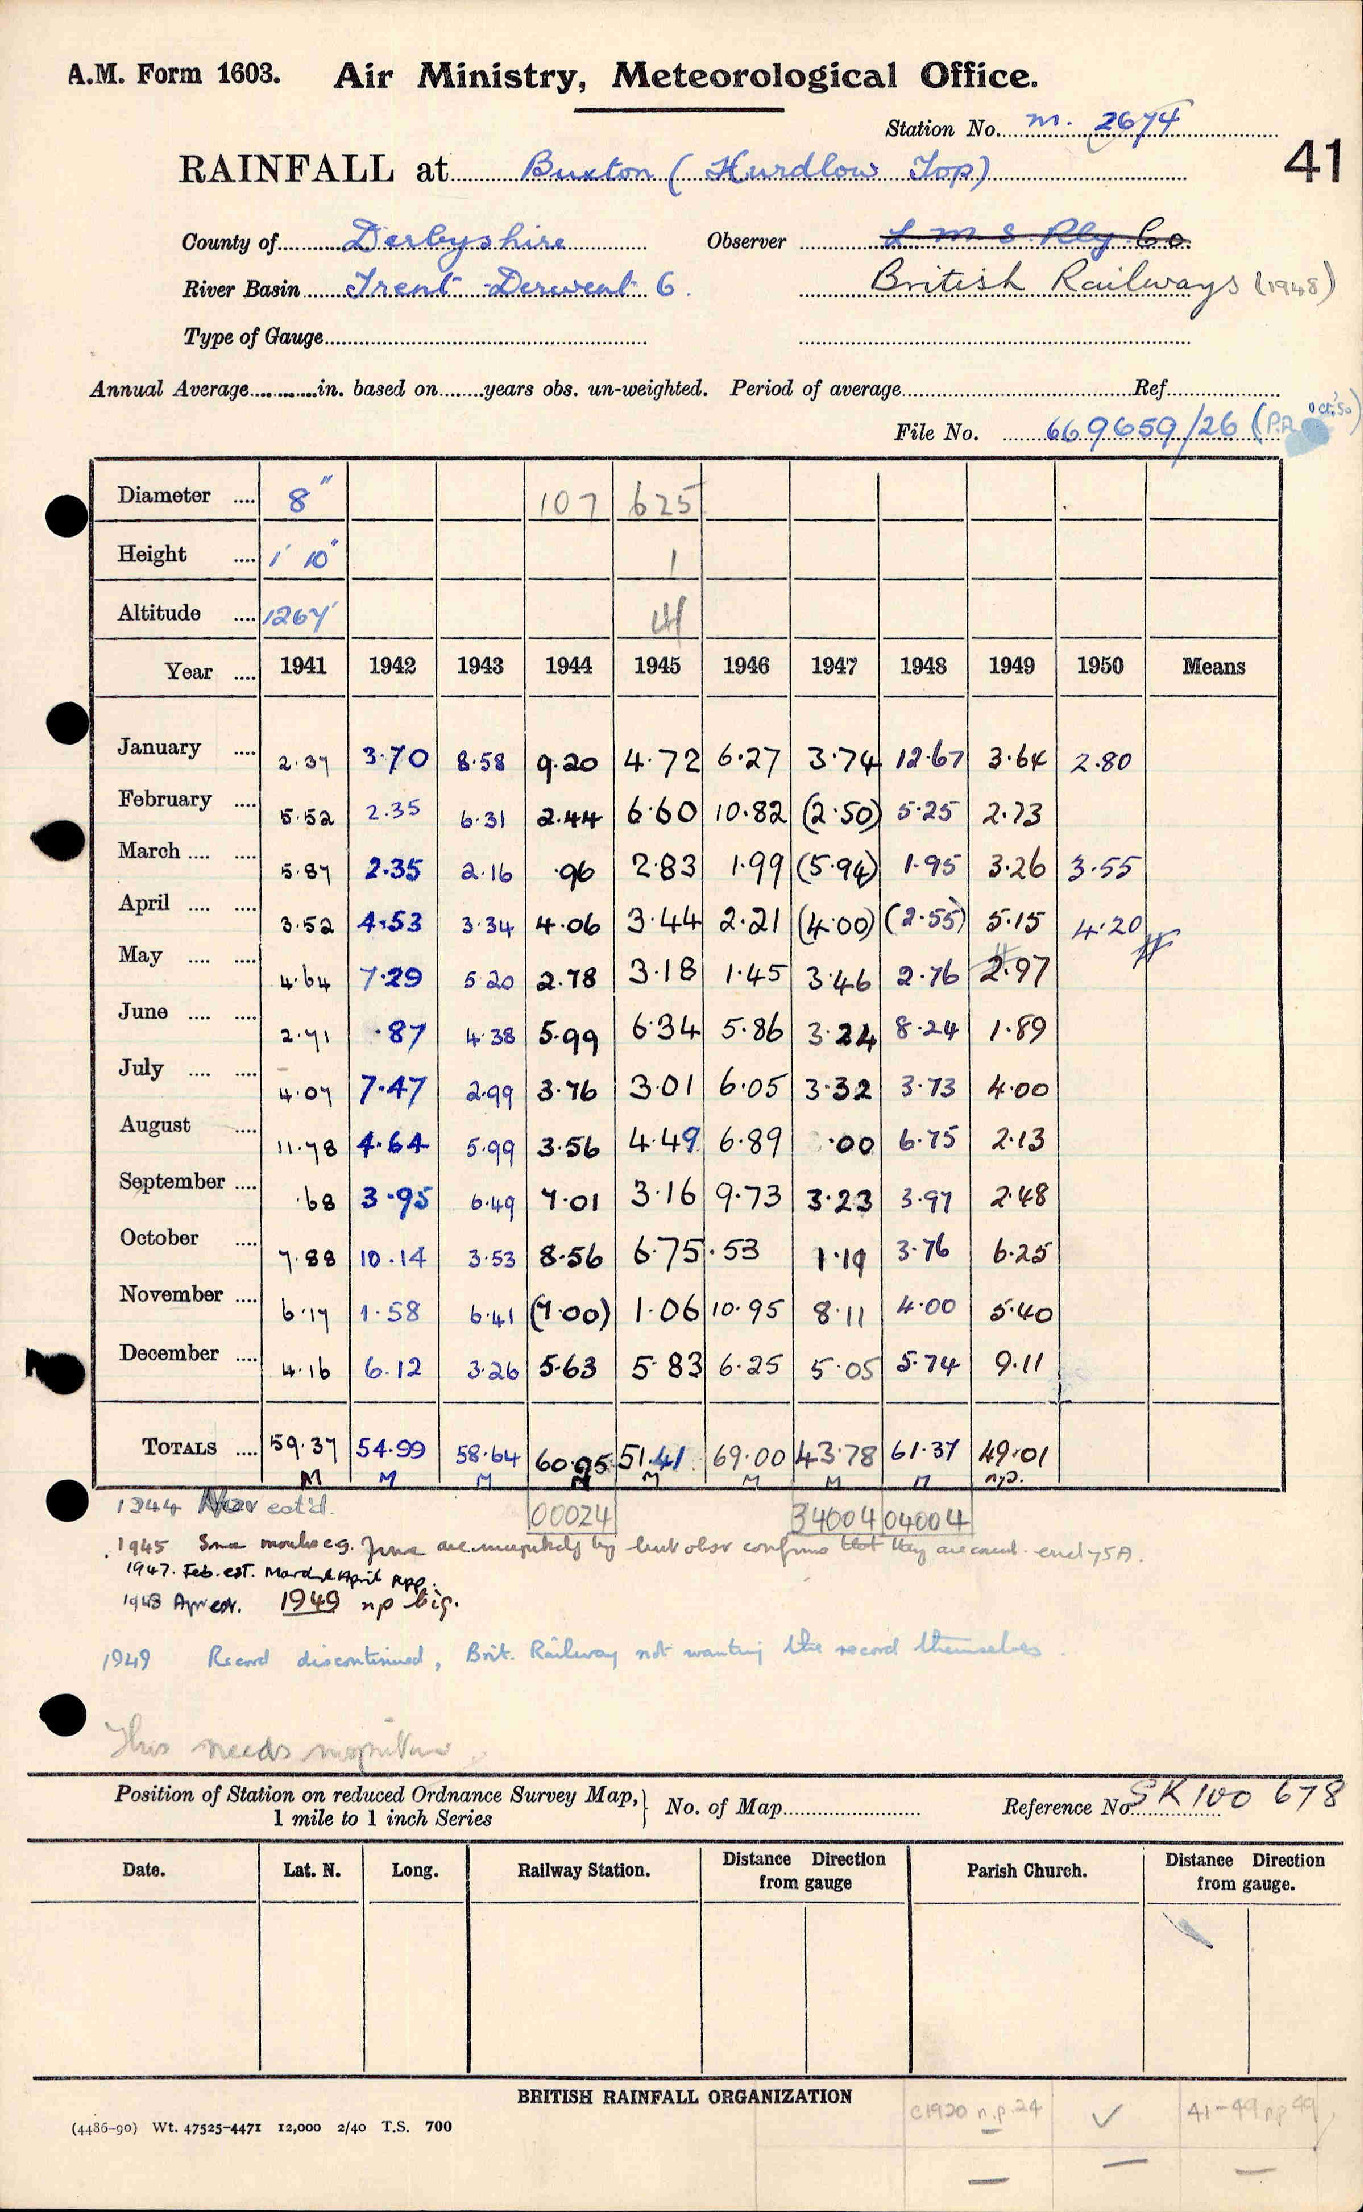 A.M. Form 1603. Air Ministry, Meteorological Office.
Station No. M. 2674
41
RAINFALL at Buxton (Hurdlow Top)
County of Derbyshire Observer L M S Rly Co.
River Basin Trent - Derwent 6. British Railways (1948)
Type of Gauge
Annual Average in. based on years obs. un-weighted. Period of average Ref.
File No. 669659/26 (P.R. Oct. '50)
Diameter .... 8" 107 625
Height .... 1' 10" 1
Altitude .... 1267'
Year .... 1941 1942 1943 1944 1945 1946 1947 1948 1949 1950 Means
January .... 2.37 3.70 8.58 9.20 4.72 6.27 3.74 12.67 3.64 2.80
February .... 5.52 2.35 6.31 2.44 6.60 10.82 (2.50) 5.25 2.73
March .... .... 5.87 2.35 2.16 .96 2.83 1.99 (5.94) 1.95 3.26 3.55
April .... .... 3.52 4.53 3.34 4.06 3.44 2.21 (4.00) (2.55) 5.15 4.20
May .... .... 4.64 7.29 5.20 2.78 3.18 1.45 3.46 2.76 2.97
June .... .... 2.71 .87 4.38 5.99 6.34 5.86 3.24 8.24 1.89
July .... .... 4.07 7.47 2.99 3.76 3.01 6.05 3.32 3.73 4.00
August .... 11.78 4.64 5.99 3.56 4.49 6.89 .00 6.75 2.13
September .... .68 3.95 6.49 7.01 3.16 9.73 3.23 3.97 2.48
October .... 7.88 10.14 3.53 8.56 6.75 .53 1.19 3.76 6.25
November .... 6.17 1.58 6.41 (7.00) 1.06 10.95 8.11 4.00 5.40
December .... 4.16 6.12 3.26 5.63 5.83 6.25 5.05 5.74 9.11
TOTALS .... 59.37 54.99 58.64 60.95 51.41 69.00 43.78 61.37 49.01
M M M M M M M M n.p.
1944 Nov est'd. 00024 34004 04004
1945 Some months e.g. June are by but obsr confirms that they are
1947. Feb. est. March & April app.
1948 Apr est. 1949 n p big.
1949 Record discontinued, Brit. Railway not wanting the record themselves.
This needs
Position of Station on reduced Ordnance Survey Map, 1 mile to 1 inch Series
No. of Map
Reference No. SK 100 678
Date. Lat. N. Long. Railway Station. Distance Direction from gauge Parish Church. Distance Direction from gauge.
BRITISH RAINFALL ORGANIZATION
(4486-90) Wt. 47525-4471 12,000 2/40 T.S. 700
c1920 n.p. 24 ✓ 41-49 np 49